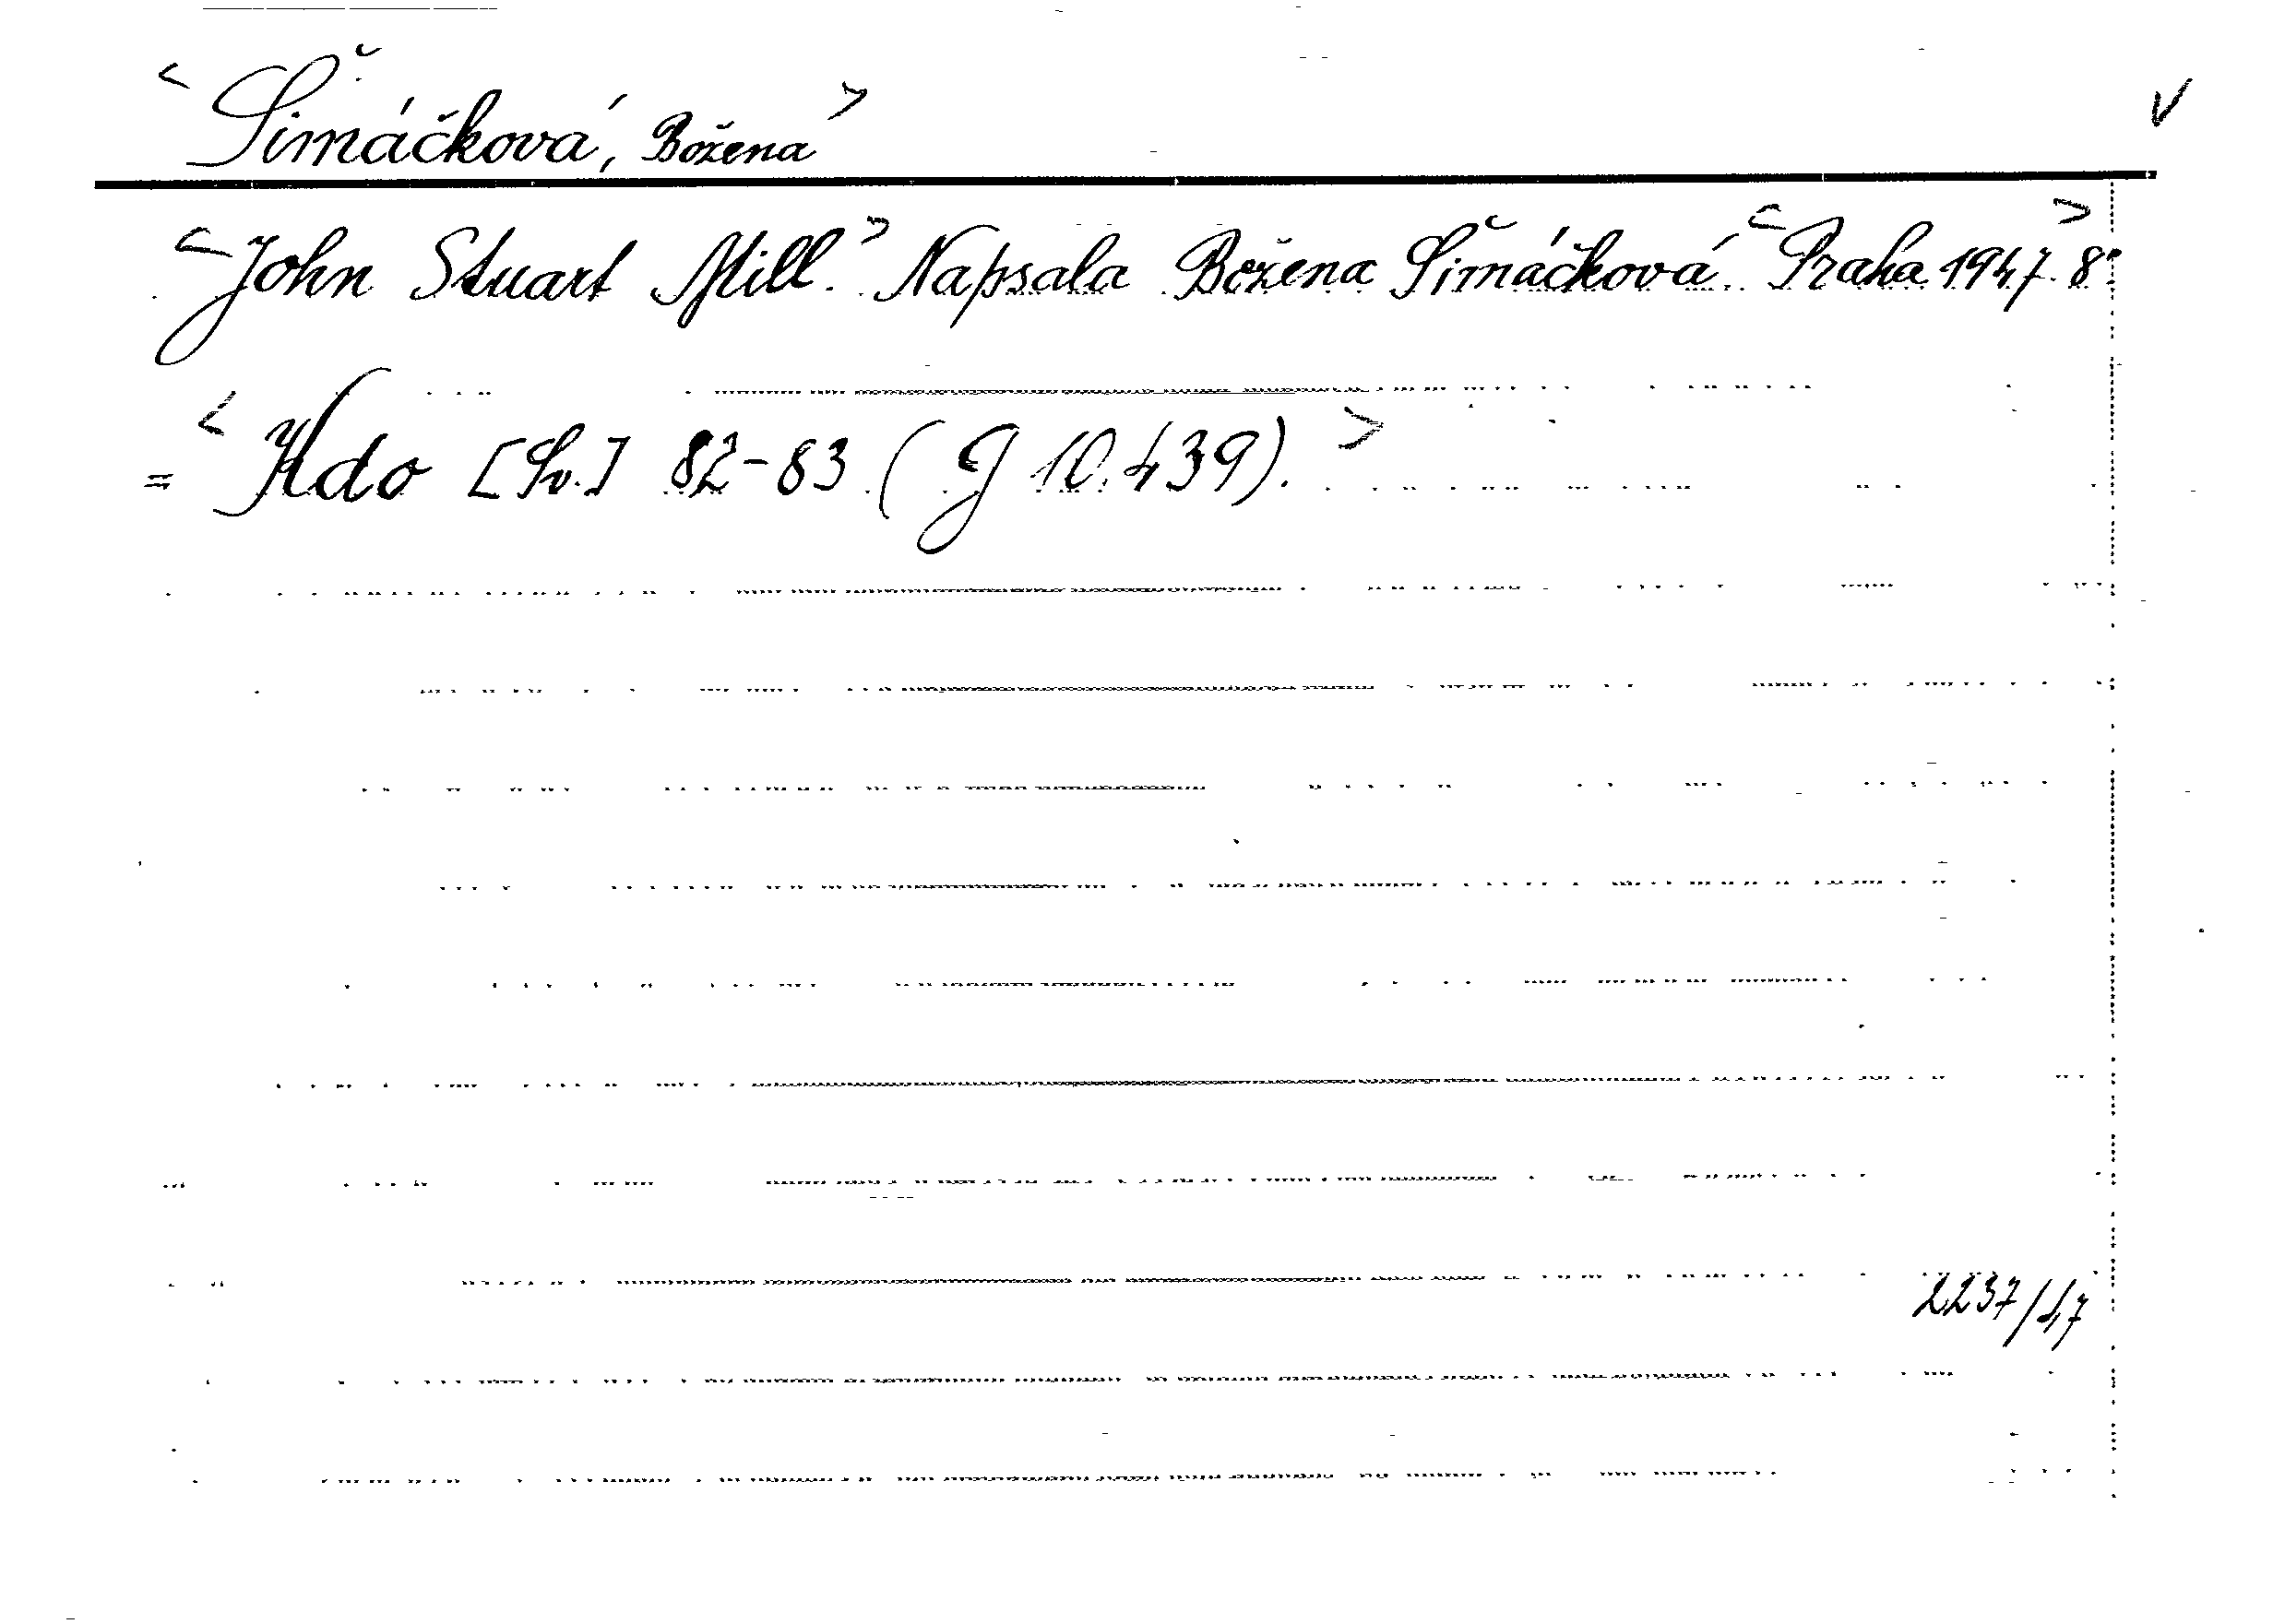 <Šimáčková, Božena> V
<John Stuart Mill.> Napsala Božena Šimáčková. <Praha 1947. 8°>
= <Kdo [Sv.] 82-83 (G 10.439).>
2237/47